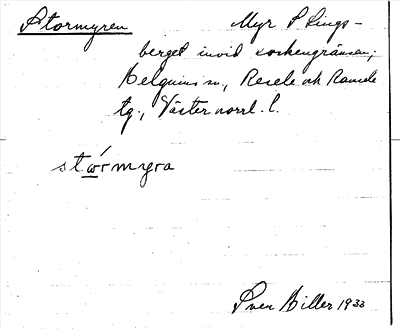 Stormyren Myr S Lings-
berget invid sockengränsen;
Helgums sn, Resele och Ramsele
tg., Västernorrl. l.
stωrmyra
Sven Hiller 1933